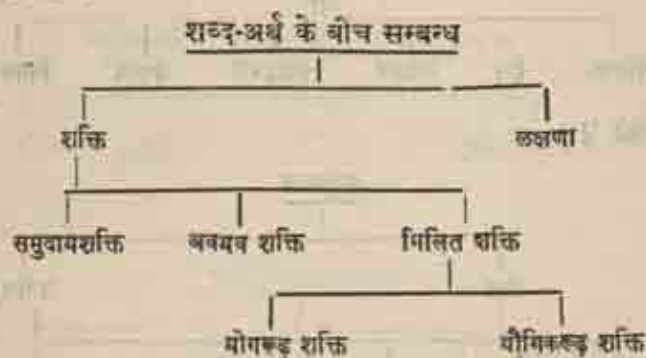 शब्द-अर्थ के बीच सम्बन्ध
शक्ति लक्षणा
समुदायशक्ति अवयव शक्ति मिलित शक्ति
योगरूढ़ शक्ति यौगिकरूढ़ शक्ति